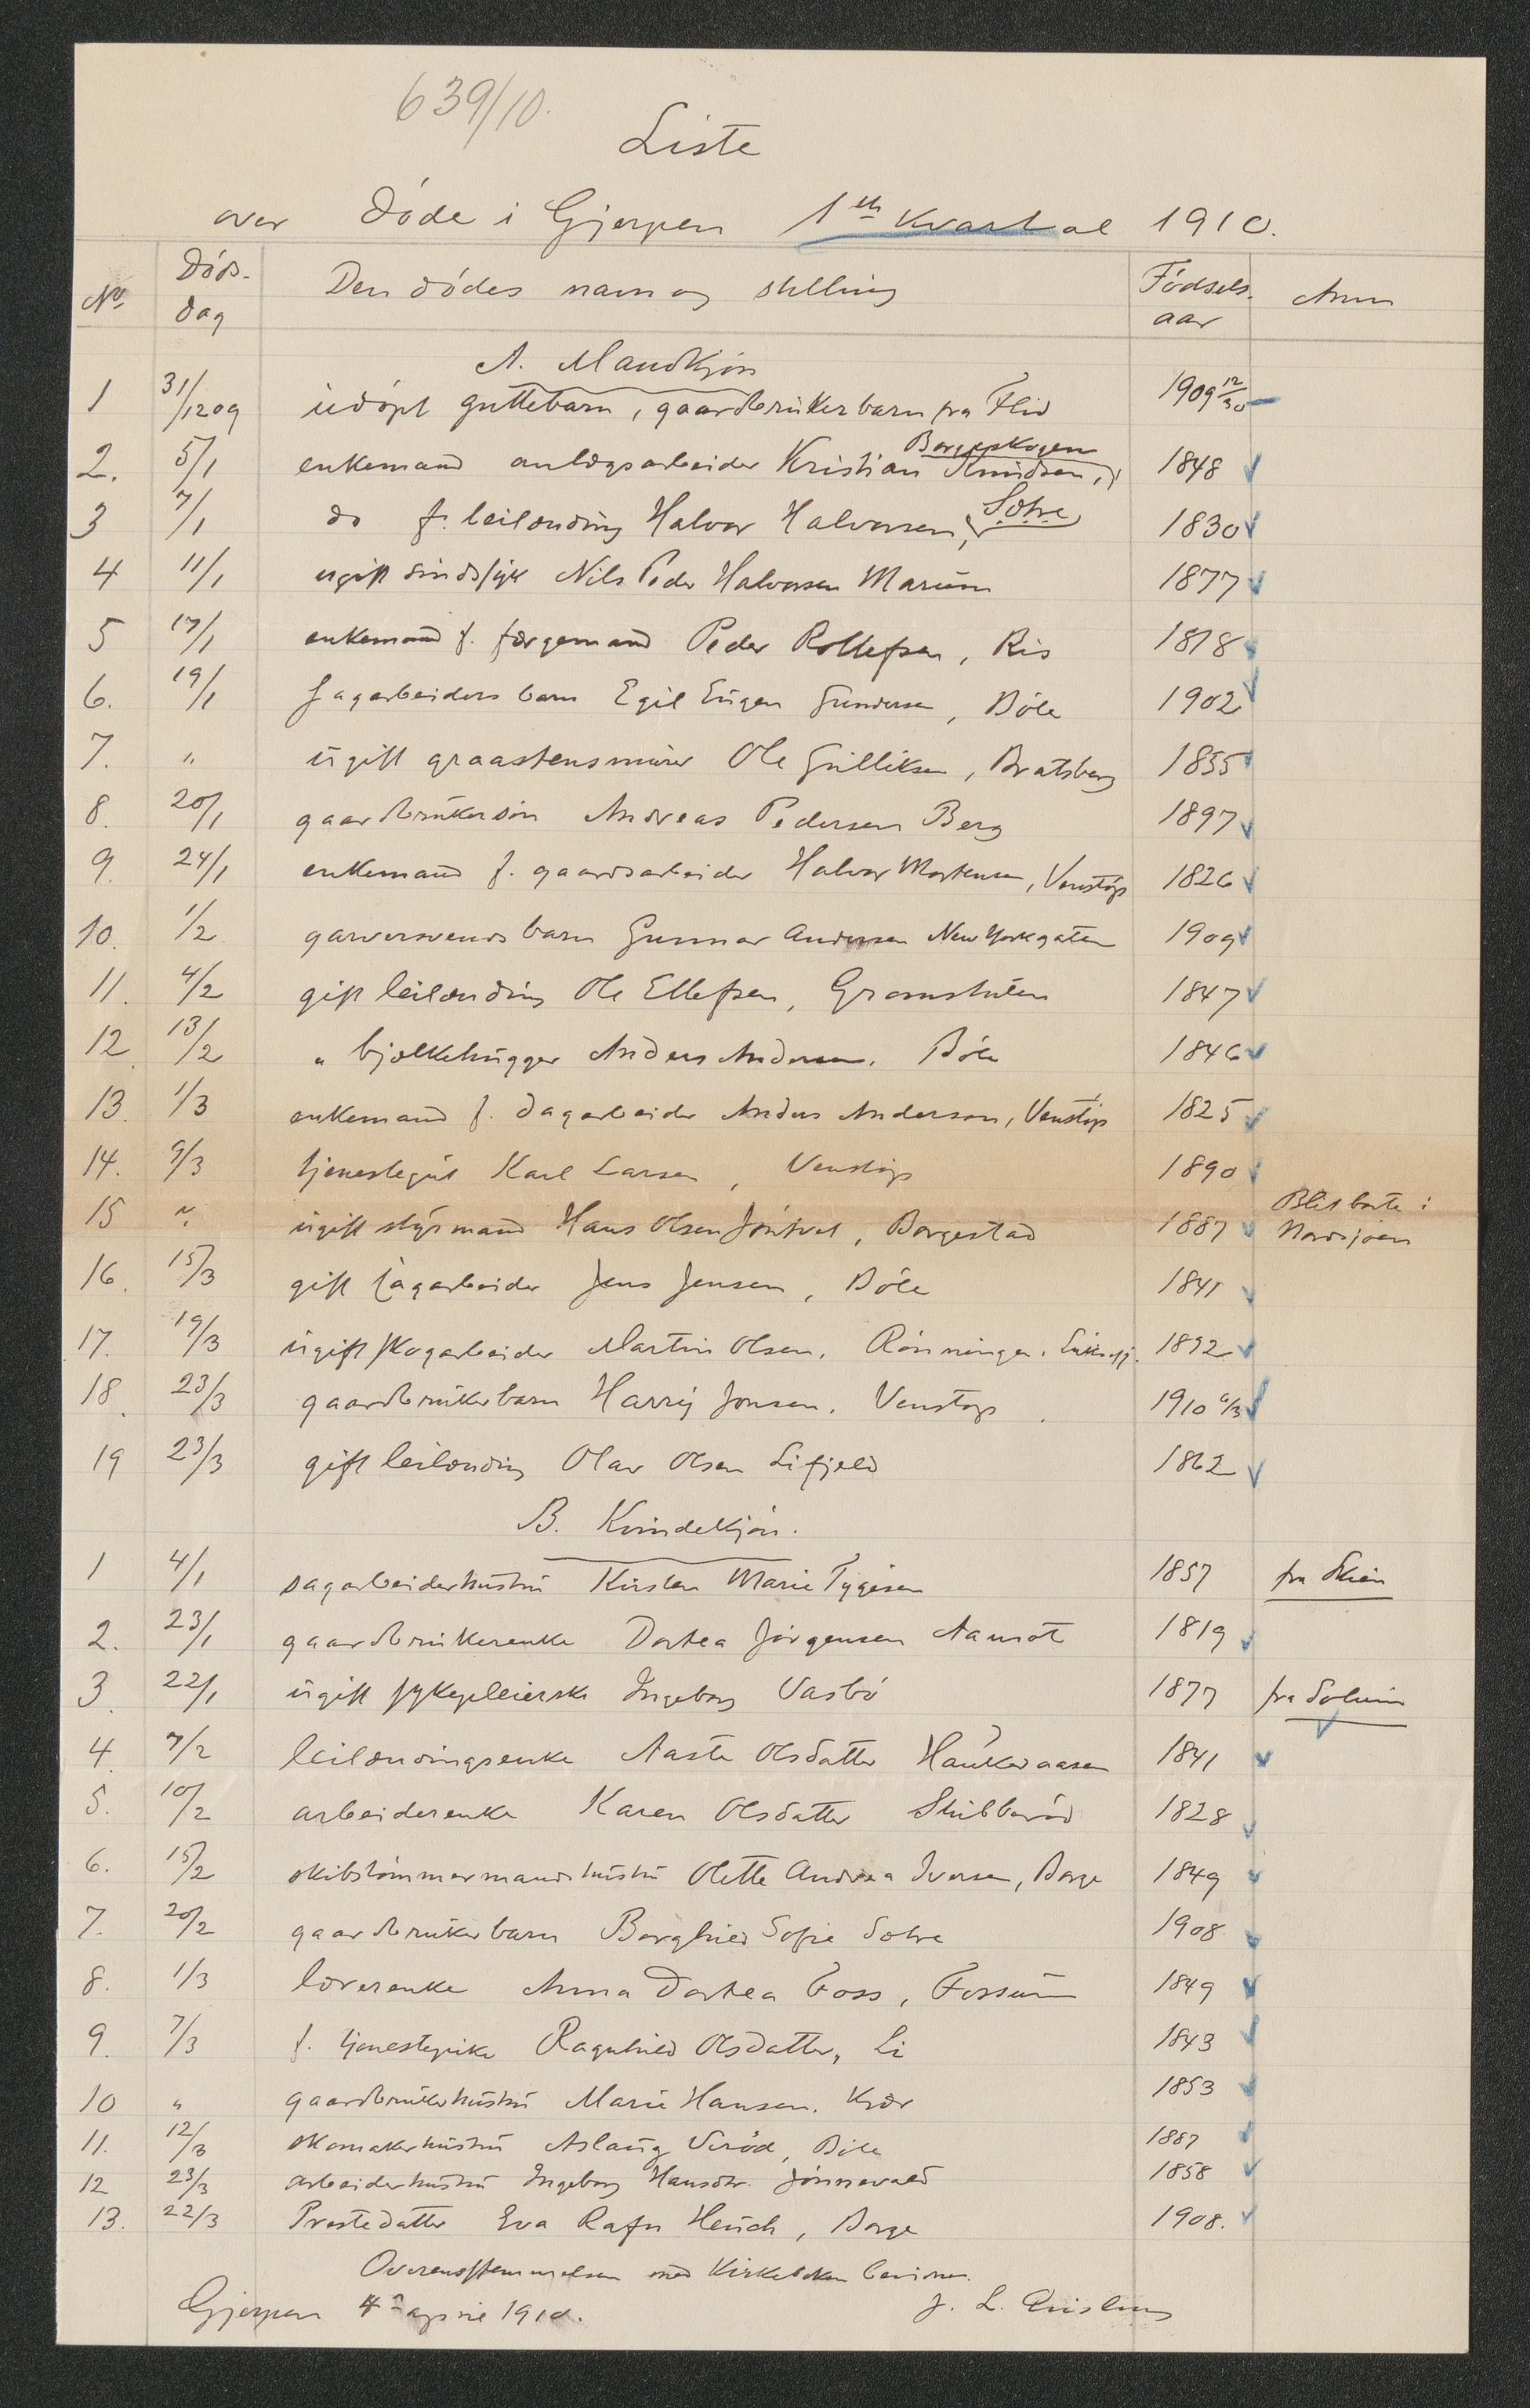 639/10.
Liste
over døde i Gjerpen 1ste kvartal 1910.
No. Døds-dag Den dødes navn og stilling Fødsels-aar Anm
A. Mandkjøn
1 31/12 09 udøpt guttebarn, gaardbrukerbarn fra Flid 1909 12/30
2. 5/1 enkemand anlægsarbeider Kristian Knudsen, Borgeskogen 1848
3 7/1 do f. leilænding Halvor Halvorsen, Sotve 1830
4 11/1 ugift sindssyk Nils Peder Halvorsen Marum 1877
5 17/1 enkemand f. færgemand Peder Rollefsen, Ris 1818
6. 19/1 sagarbeiders barn Egil Eugen Gundersen, Bøle 1902
7. " ugift graastensmurer Ole Gulliksen, Bratsberg 1855
8. 20/1 gaardbrukersøn Andreas Pedersen Berg 1897
9. 24/1 enkemand f. gaardsarbeider Halvor Mortensen, Venstøp 1826
10. 1/2 garversvends barn Gunnar Andersen New Yorkgaten 1909
11. 4/2 gift leilænding Ole Ellefsen, Gromstulen 1847
12 13/2 " bjelkehugger Anders Andersen. Bøle 1846
13 1/3 enkemand f. dagarbeider Anders Anderson, Venstøp 1825
14. 9/3 tjenestegut Karl Larsen, Venstøp 1890
15 " ugift styrmand Hans Olsen Jøntvet, Borgestad 1887 Blit borte i Nordsjøen
16. 15/3 gift sagarbeider Jens Jensen, Bøle 1841
17. 19/3 ugift skogarbeider Martin Olsen. Rønningen. 1892
18. 23/3 gaardbrukerbarn Harry Jonsen. Venstøp. 1910 6/3
19 23/3 gift leilænding Olav Olsen Lifjeld 1862
B. Kvindekjøn.
1 4/1 sagarbeiderhustru Kirsten Marie Tygesen 1857 fra Skien
2. 23/1 gaardbrukerenke Dortea Jørgensen Aamot 1819
3. 22/1 ugift sykepleierske Ingeborg Vasbø 1877 fra Solum
4. 7/2 leilændingsenke Aaste Olsdatter Haukeraasen 1841
5. 10/2 arbeiderenke Karen Olsdatter Stubberød 1828
6. 15/2 skibstømmermandshustru Olette Andrea Iversen, Borge 1849
7. 20/2 gaardbrukerbarn Borghild Sofie Sotve 1908
8. 1/3 lærerenke Anna Dortea Foss, Fossum 1849
9. 7/3 f. tjenestepike Ragnhild Olsdatter, Li 1843
10 " gaardbrukerhustru Marie Hansen. Kjær 1853
11. 12/3 skomakerhustru Aslaug Verød, Bøle 1887
12 23/3 arbeiderhustru Ingeborg Hansdtr. Jønnevald 1858
13. 22/3 Prestedatter Eva Rafn Heuch, Borge 1908.
Overensstemmelsen med Kirkeboken bevidnes.
Gjerpen 4de april 1910. J. L. Quisling